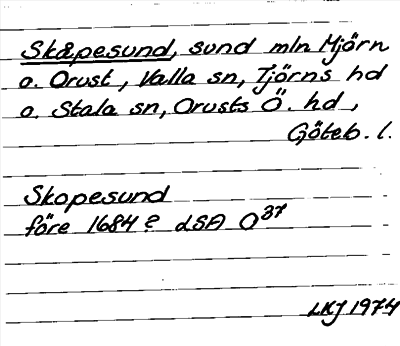 Skåpesund, sund mln Mjörn
o. Orust, Valla sn, Tjörns hd
o. Stala sn, Orusts Ö. hd,
Göteb. l.
Skopesund
före 1684? LSA O37
LKJ 1974